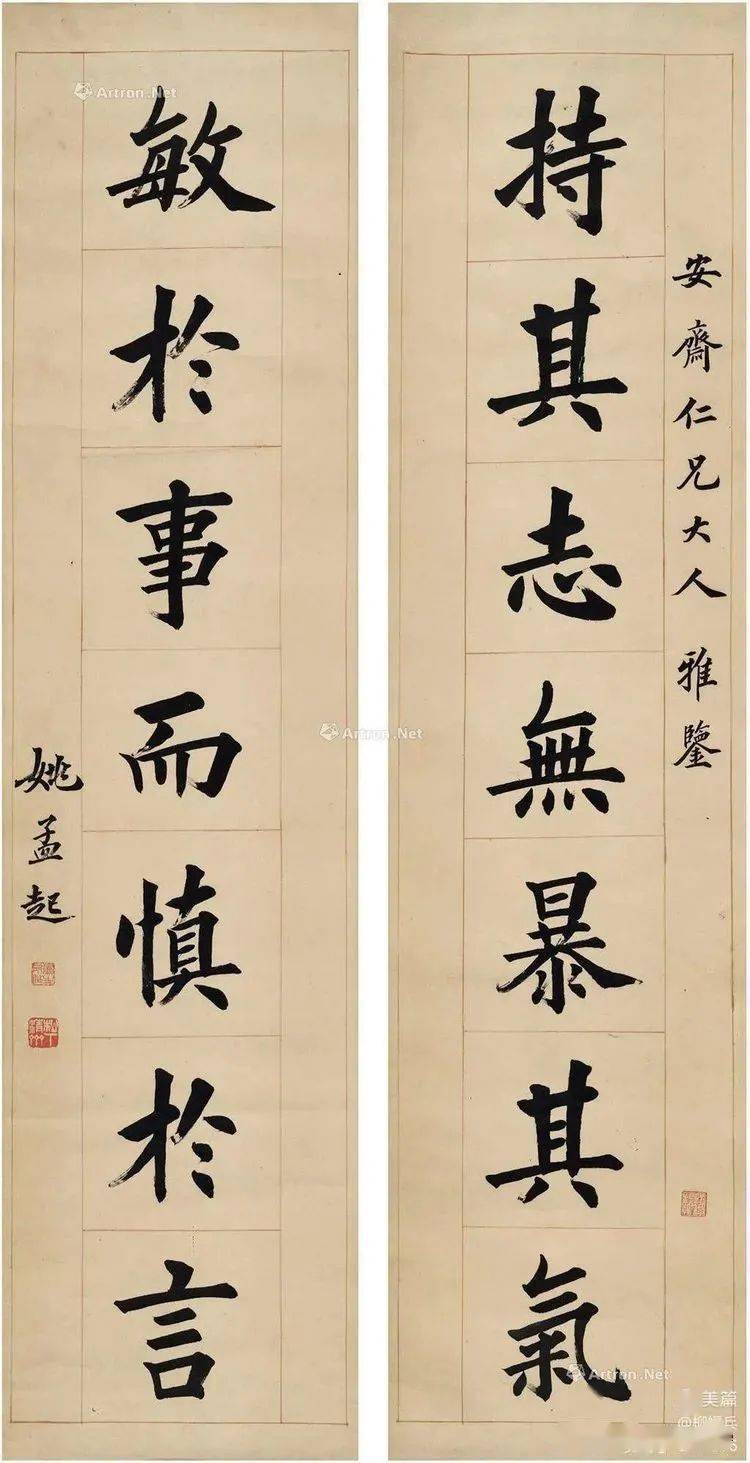 安齋仁兄大人 雅鑒
持其志無暴其氣
敏於事而慎於言
姚孟起
Artron.Net
Artron.Net
Artron.Net
美篇